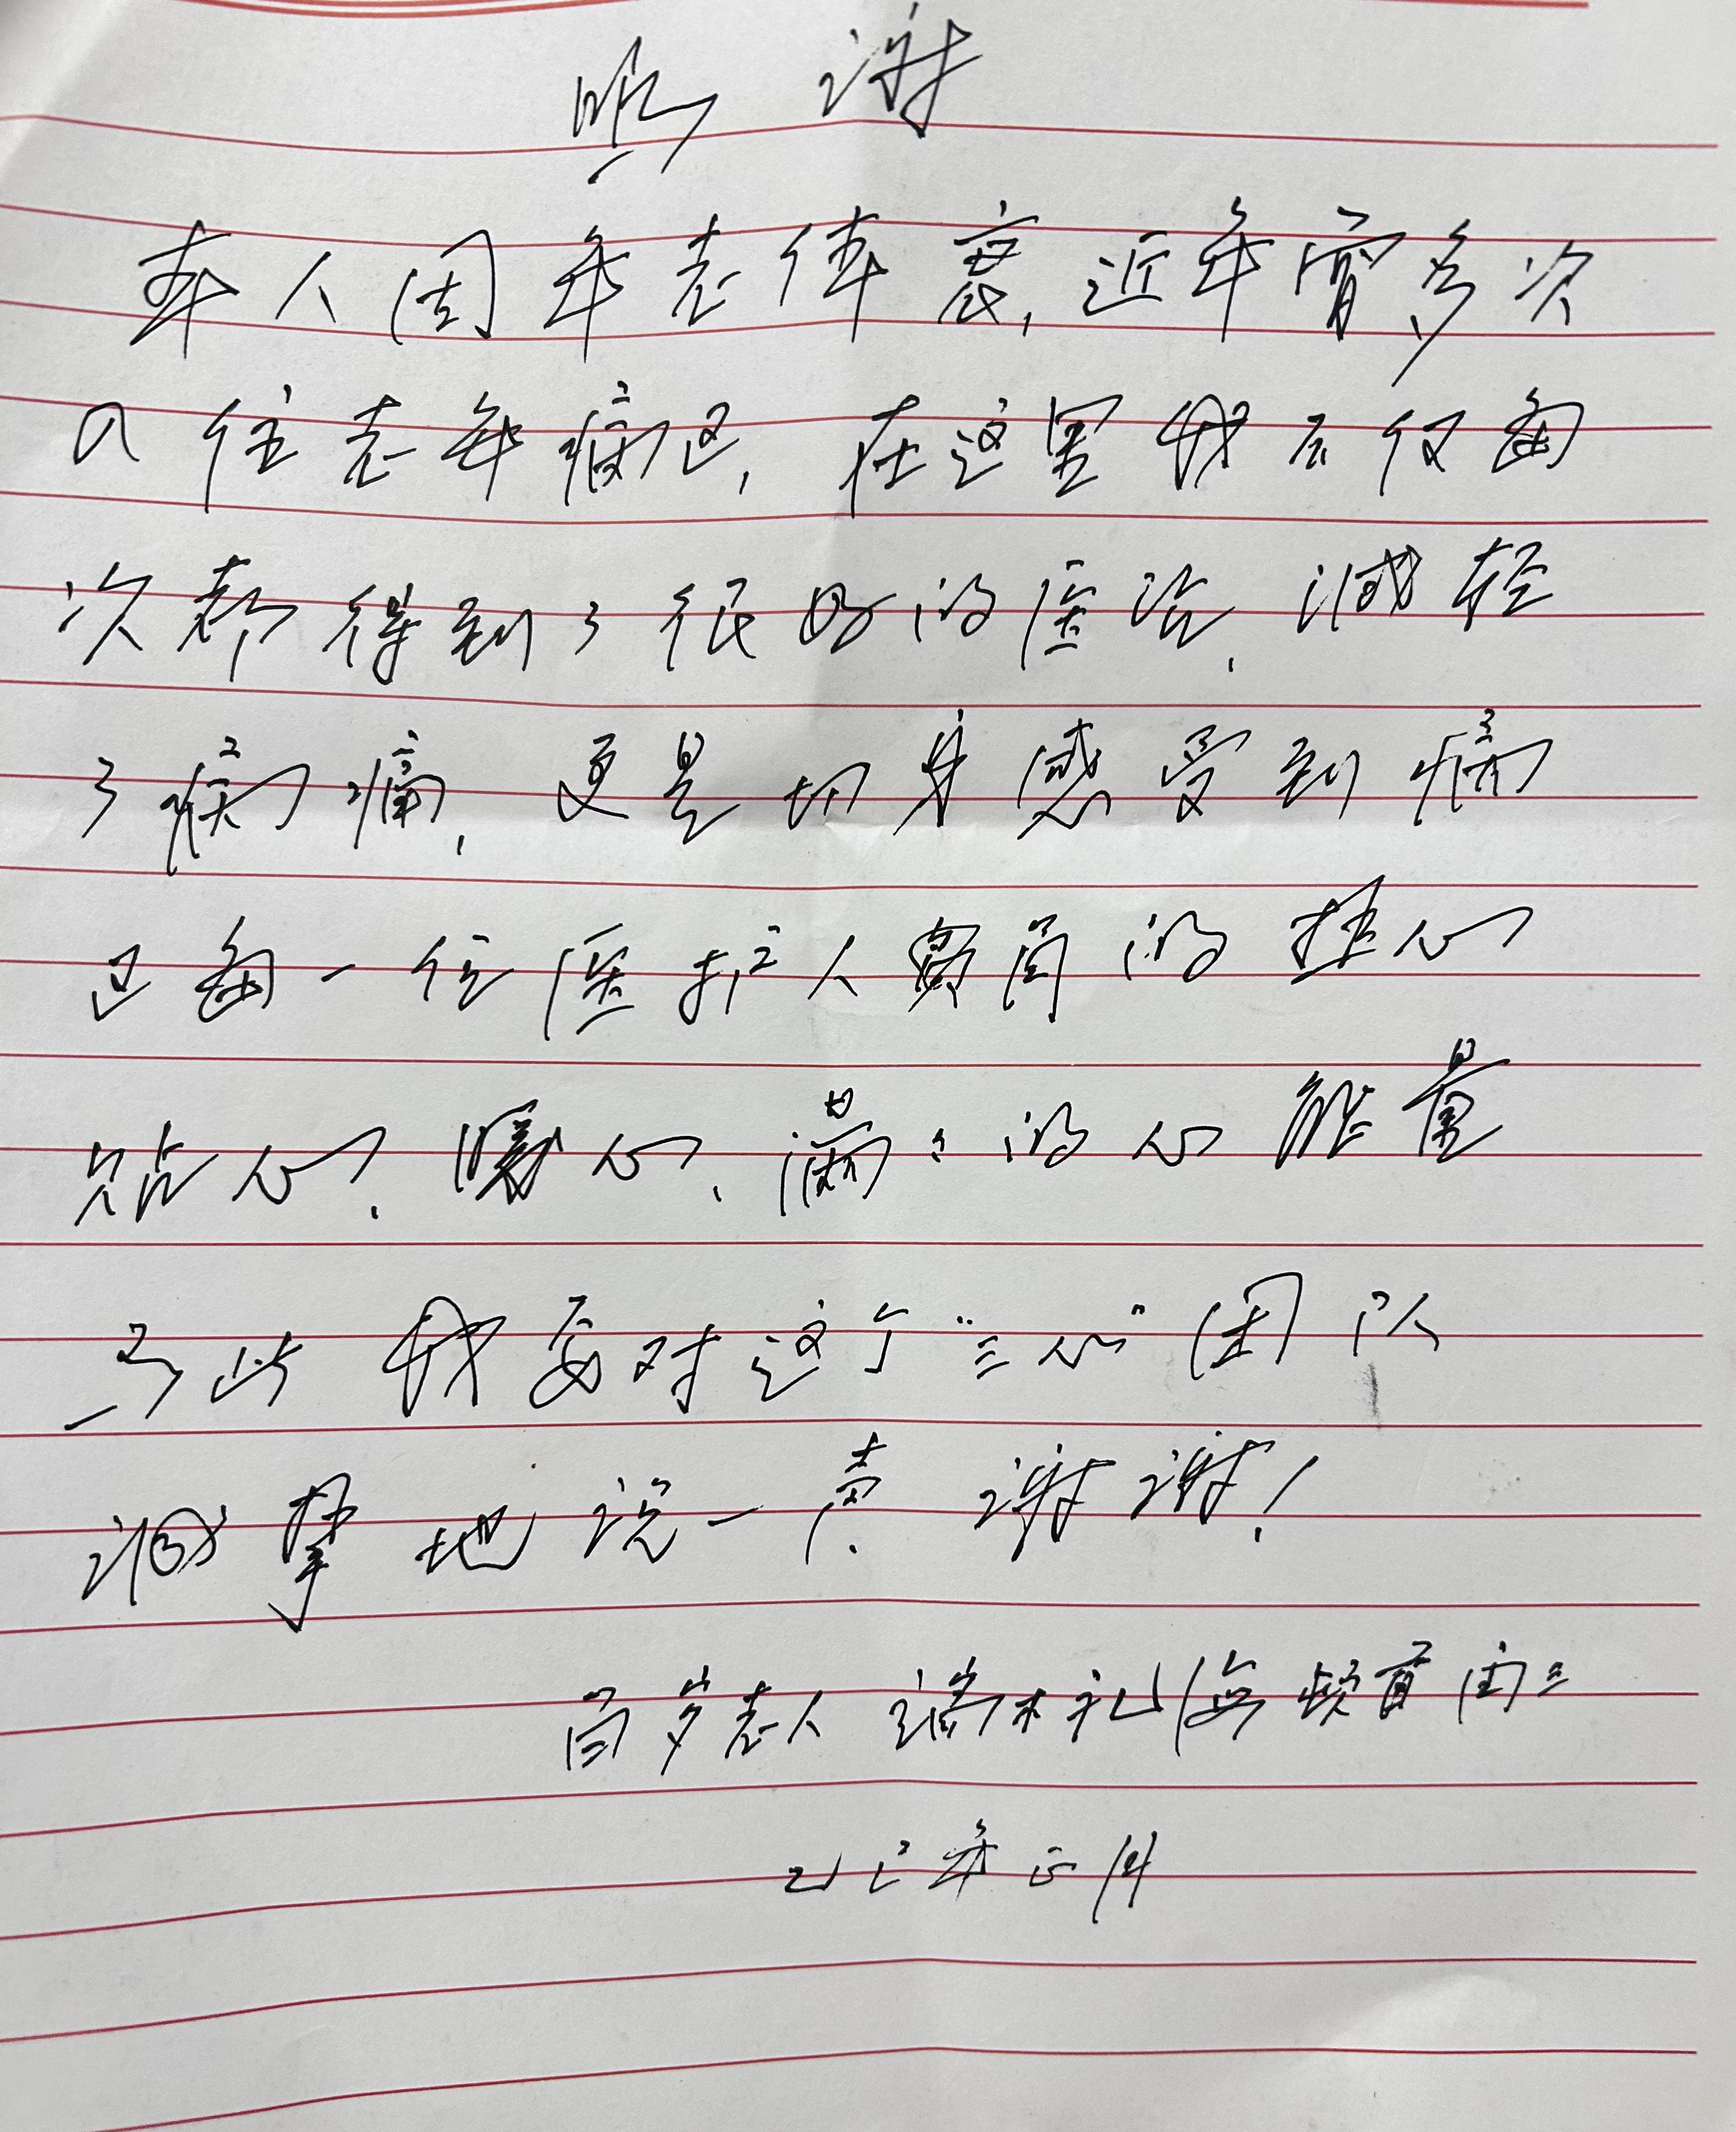 感谢
本人因年老体衰,近年曾多次
入住老年病区,在这里我不仅每
次都得到了很好的医治,减轻
了病痛,更是切身感受到病
区每一位医护人员的热心
贴心、暖心、满满的心能量
为此我要对这个“三心”团队
诚挚地说一声谢谢!
百岁老人
乙巳年